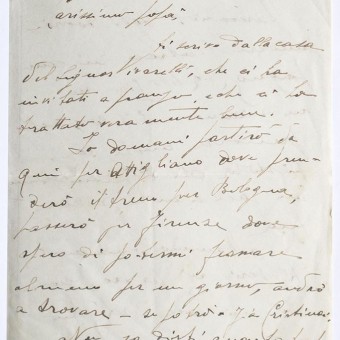 arissimo Papà
Ti scrivo dalla casa
del Signor Vivaretti, che ci ha
invitati a pranzo, e che ci ha
trattato veramente bene.
Io domani partirò da
qui per Avigliano dove pren-
derò il treno per Bologna,
passerò per Firenze dove
spero di potermi fermare
almeno per un giorno, andrò
a trovare - se potrò - zia Cristina.
Non so